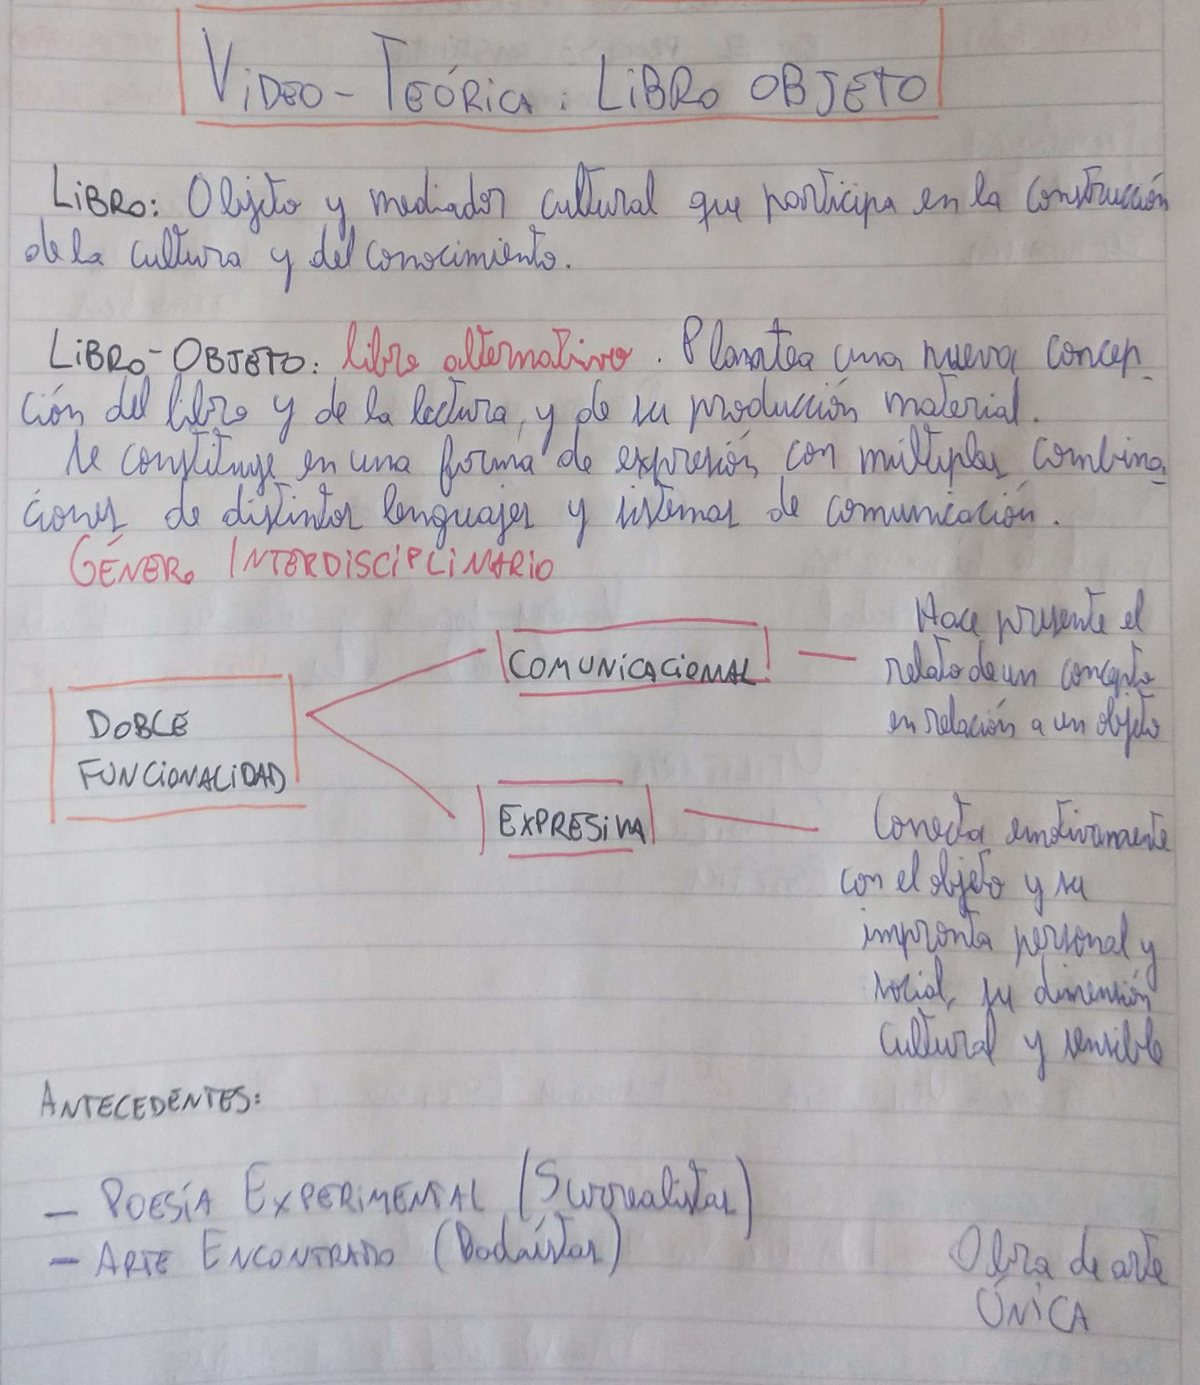 VIDEO-TEÓRICA: LIBRO OBJETO
LIBRO: Objeto y mediador cultural que participa en la construcción
de la cultura y del conocimiento.
LIBRO-OBJETO: libro alternativo. Plantea una nueva concep-
ción del libro y de la lectura, y de su producción material.
Se constituye en una forma de expresión con múltiples combina-
ciones de distintos lenguajes y sistemas de comunicación.
GÉNERO INTERDISCIPLINARIO
DOBLE
FUNCIONALIDAD
COMUNICACIONAL
Hace presente el
relato de un concepto
en relación a un objeto
EXPRESIVA
Conecta emotivamente
con el objeto y su
impronta personal y
social, su dimensión
cultural y sensible
ANTECEDENTES:
- POESÍA EXPERIMENTAL (Surrealistas)
- ARTE ENCONTRADO (Dadaístas)
Obra de arte
ÚNICA